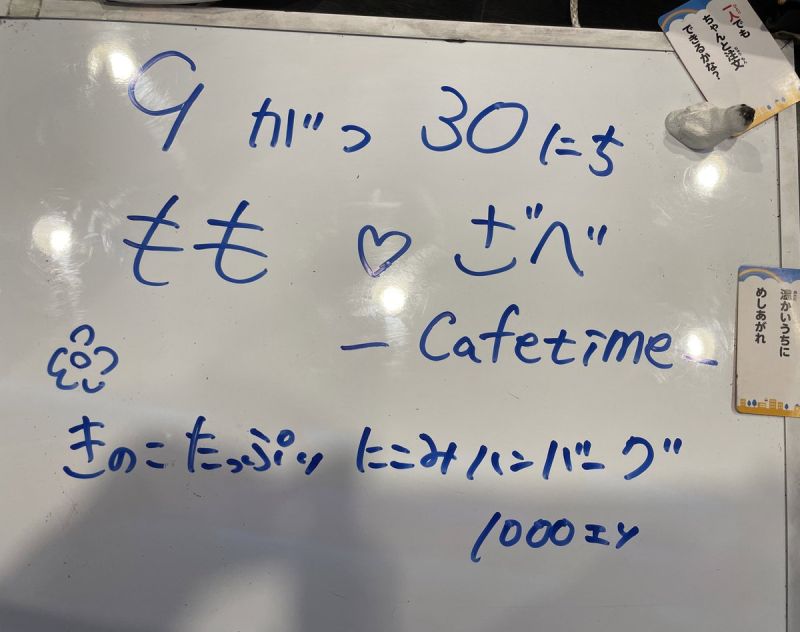 一人でも
ちゃんと注文
できるかな？
9がつ30にち
もも♡ざべ
- Cafetime -
温かいうちに
めしあがれ
きのこたっぷり にこみハンバーグ
1000エン